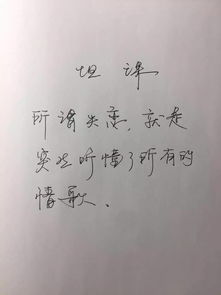 坦课
所谓失恋,就是
突然听懂了所有的
情歌.